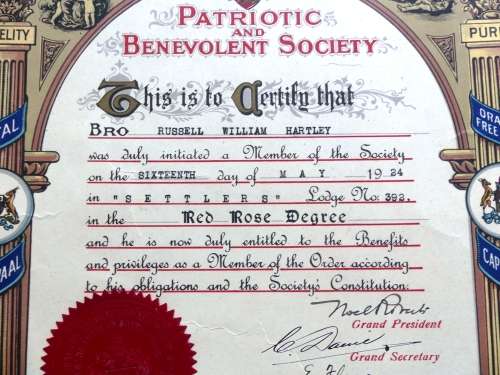 PATRIOTIC
AND
BENEVOLENT SOCIETY
This is to Certify that
BRO RUSSELL WILLIAM HARTLEY
was duly initiated a Member of the Society
on the SIXTEENTH day of MAY 1924
in "SETTLERS" Lodge No: 392.
in the Red Rose Degree
and he is now duly entitled to the Benefits
and privileges as a Member of the Order according
to his obligations and the Society's Constitution.
Grand President
Grand Secretary